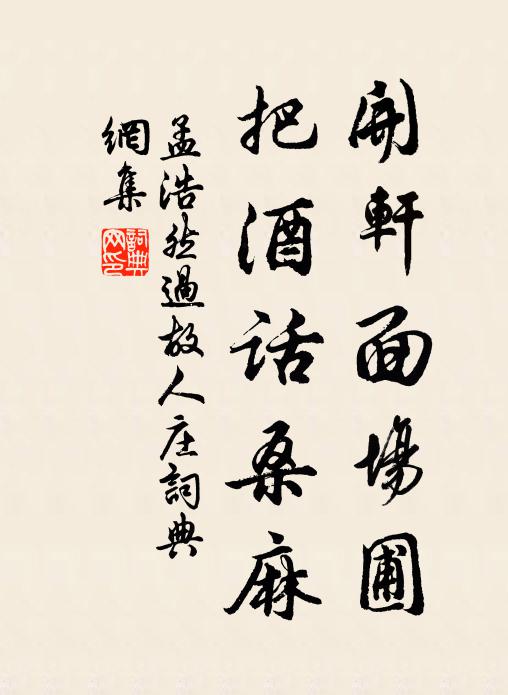 開軒面場圃
把酒話桑麻
孟浩然過故人庄詞典
網集
詞典
网印